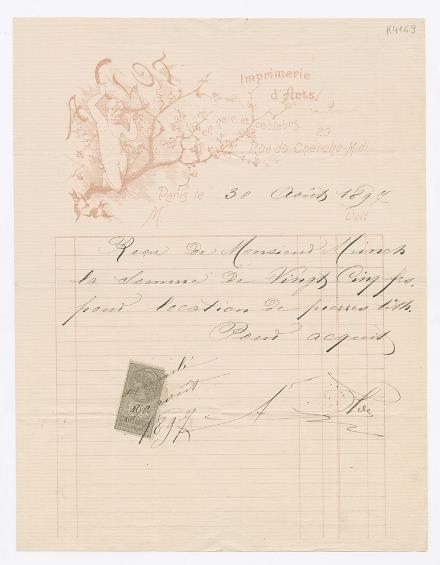 K4169
A. CLOT
Imprimerie
d'Arts
en noir et
23
Rue du Cherche-Midi
Paris le 30 Août 1897
M Doit
Reçu de Monsieur Munch
la somme de Vingt Cinq frs.
pour location de pierres lith.
Pour acquit
août
1897
10c
A Clot